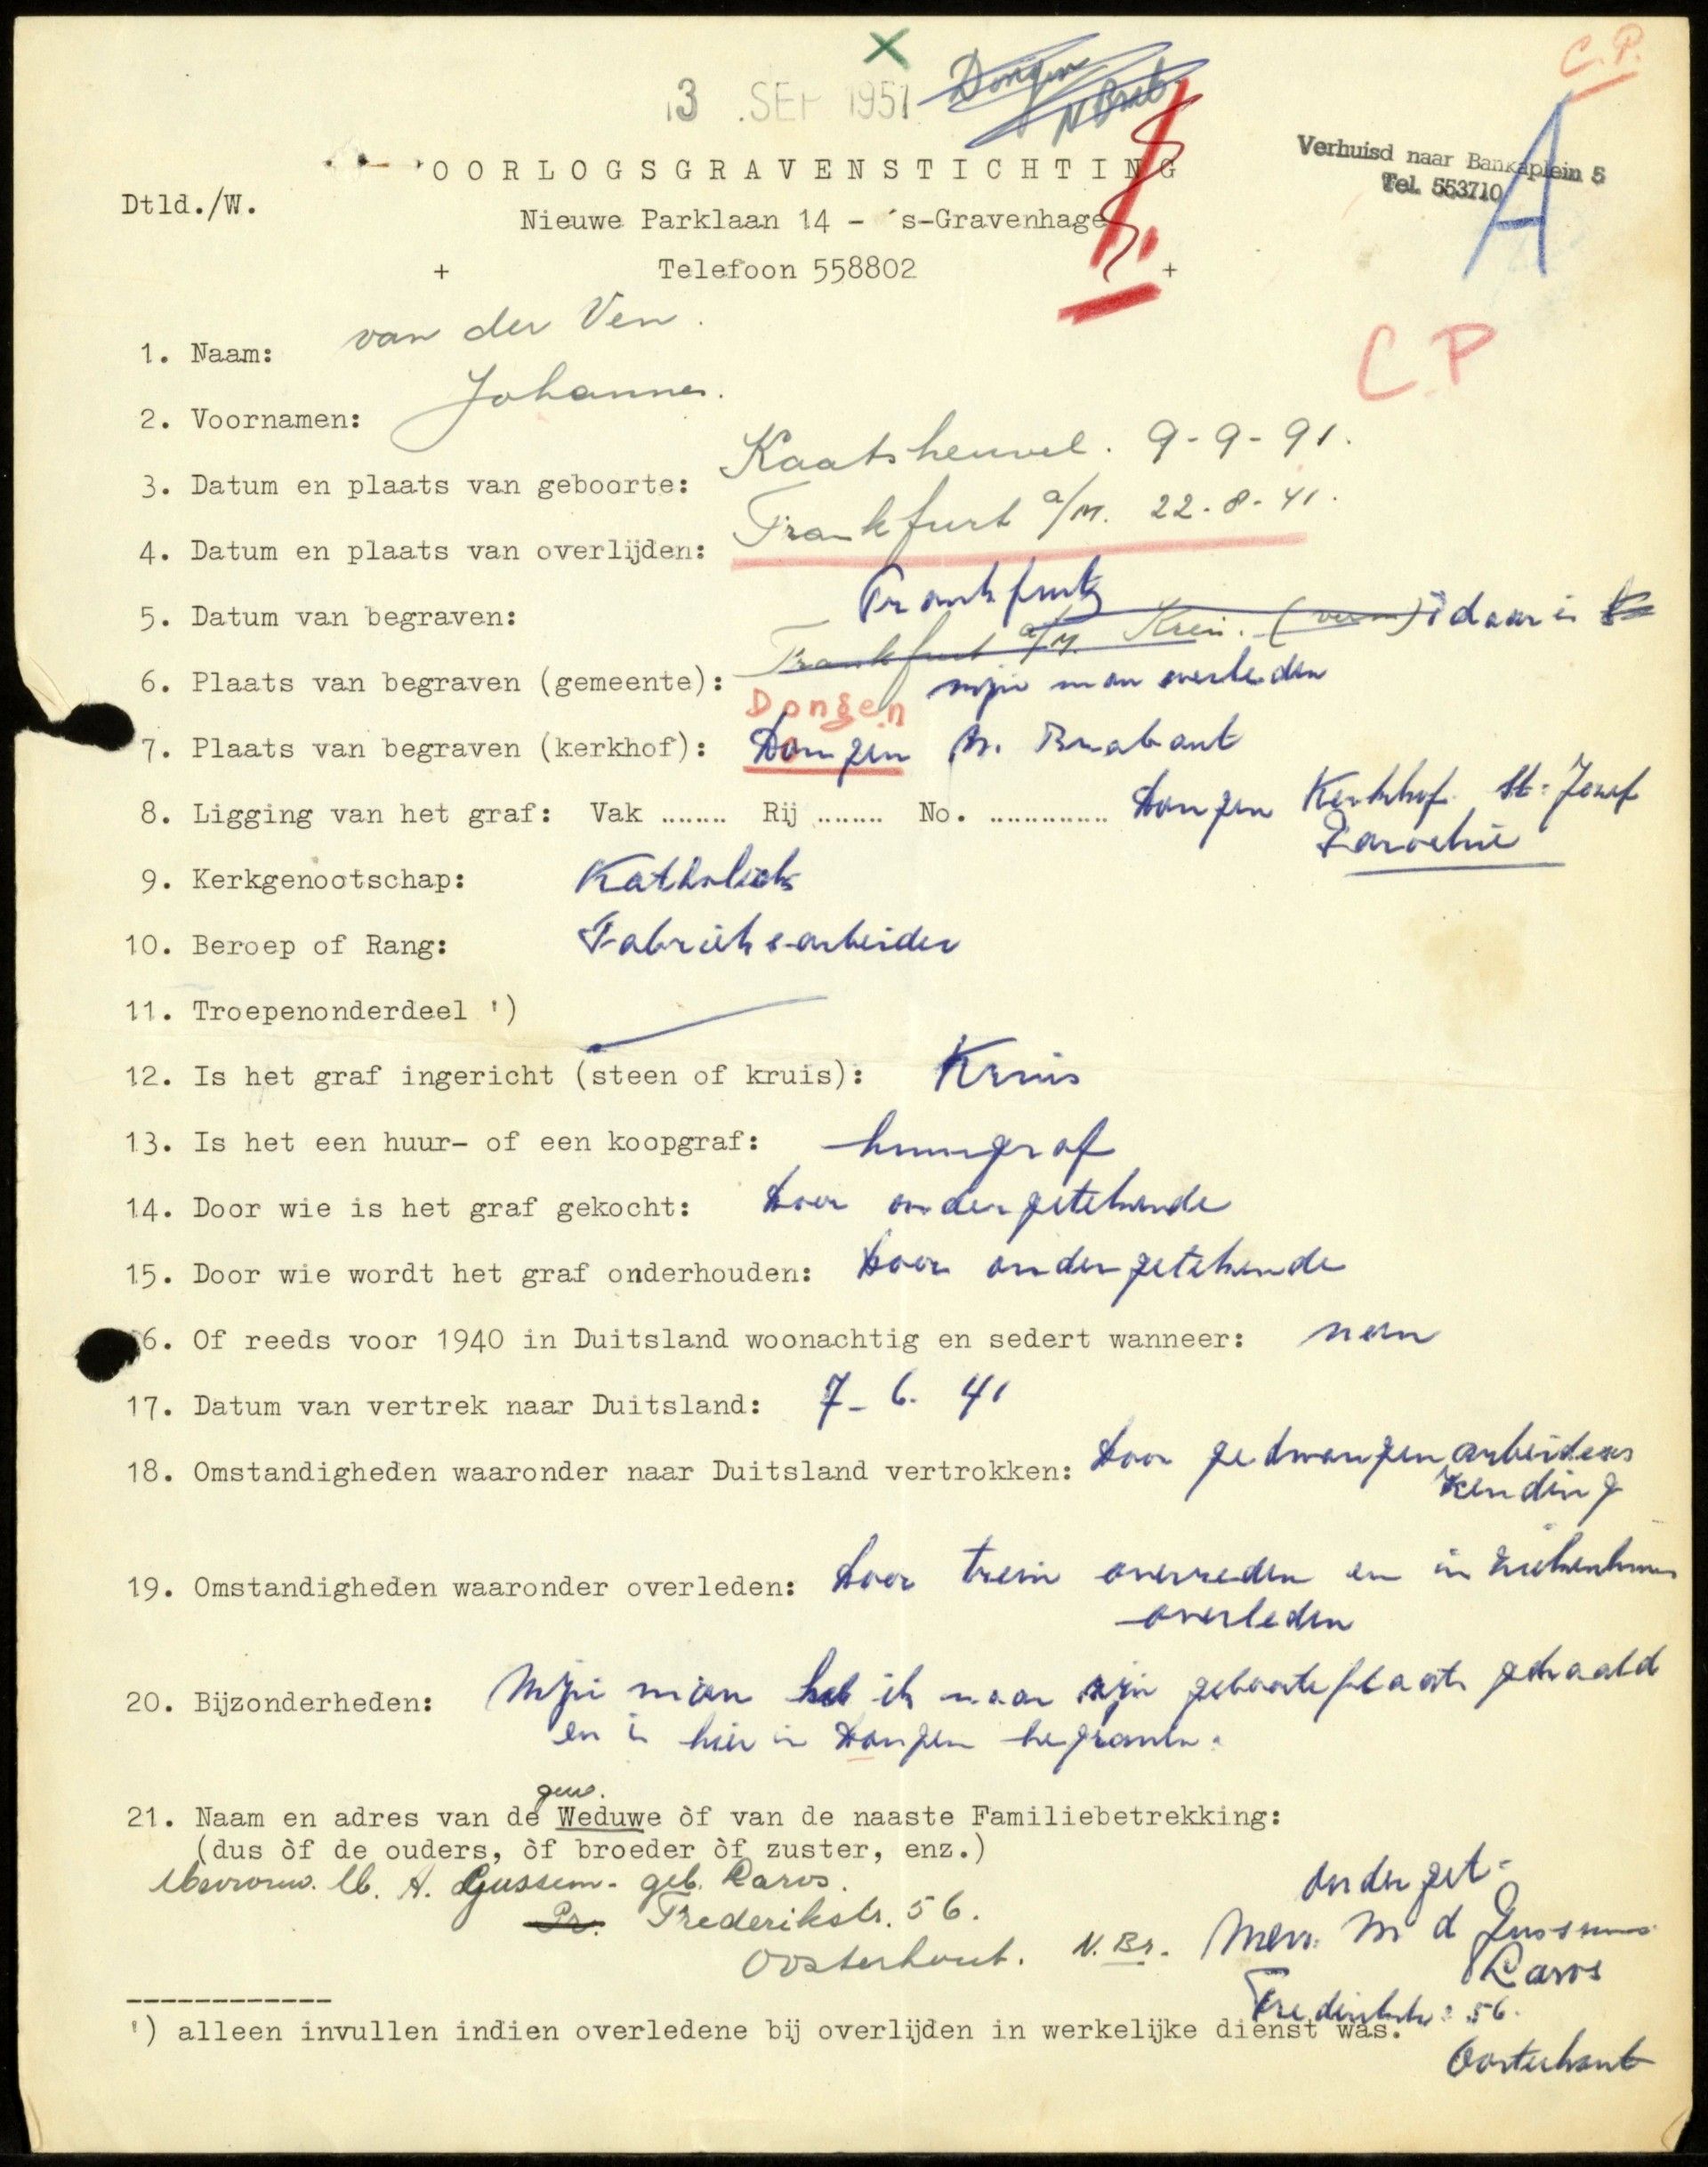 C.P.
Dongen
N Brab
13 SEP 1951
OORLOGSGRAVENSTICHTING
Verhuisd naar Bankaplein 5
Tel. 553710
A
Dtld./W.
Nieuwe Parklaan 14 - 's-Gravenhage
+ Telefoon 558802 +
C P
1. Naam: van der Ven.
2. Voornamen: Johannes.
3. Datum en plaats van geboorte: Kaatsheuvel. 9-9-91.
4. Datum en plaats van overlijden: Frankfurt a/M. 22-8-41.
5. Datum van begraven: Frankfurt daar is
6. Plaats van begraven (gemeente): Frankfurt a/M. mijn man overleden
Dongen
7. Plaats van begraven (kerkhof): Dongen N. Brabant
8. Ligging van het graf: Vak ........ Rij ........ No. ............... Dongen Kerkhof St. Josef
Parochie
9. Kerkgenootschap: Katholiek
10. Beroep of Rang: Fabrieksarbeider
11. Troepenonderdeel ')
12. Is het graf ingericht (steen of kruis): Kruis
13. Is het een huur- of een koopgraf: huurgraf
14. Door wie is het graf gekocht: Door ondergetekende
15. Door wie wordt het graf onderhouden: Door ondergetekende
6. Of reeds voor 1940 in Duitsland woonachtig en sedert wanneer: neen
17. Datum van vertrek naar Duitsland: 7-6. 41
18. Omstandigheden waaronder naar Duitsland vertrokken: Door gedwongen arbeiders
zending
19. Omstandigheden waaronder overleden: Door trein overreden en in ziekenhuis
overleden
20. Bijzonderheden: Mijn man heb ik naar zijn geboorteplaats gehaald
en is hier in Dongen begraven.
gew.
21. Naam en adres van de Weduwe òf van de naaste Familiebetrekking:
(dus òf de ouders, òf broeder òf zuster, enz.)
Mevrouw. M. A. Gussem- geb. Raros.
Pr. Frederikstr. 56.
Oosterhout. N. Br.
onderget-
Mevr. M d Gussem
Raros
Frederikstr: 56.
Oosterhout
') alleen invullen indien overledene bij overlijden in werkelijke dienst was.